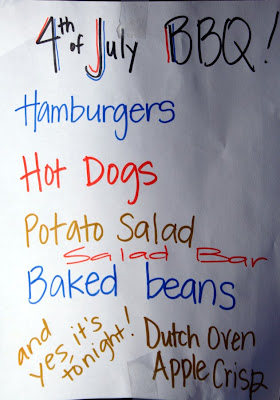 4th of July BBQ!
Hamburgers
Hot Dogs
Potato Salad
Salad Bar
Baked beans
and yes, it's tonight!
Dutch Oven
Apple Crisp